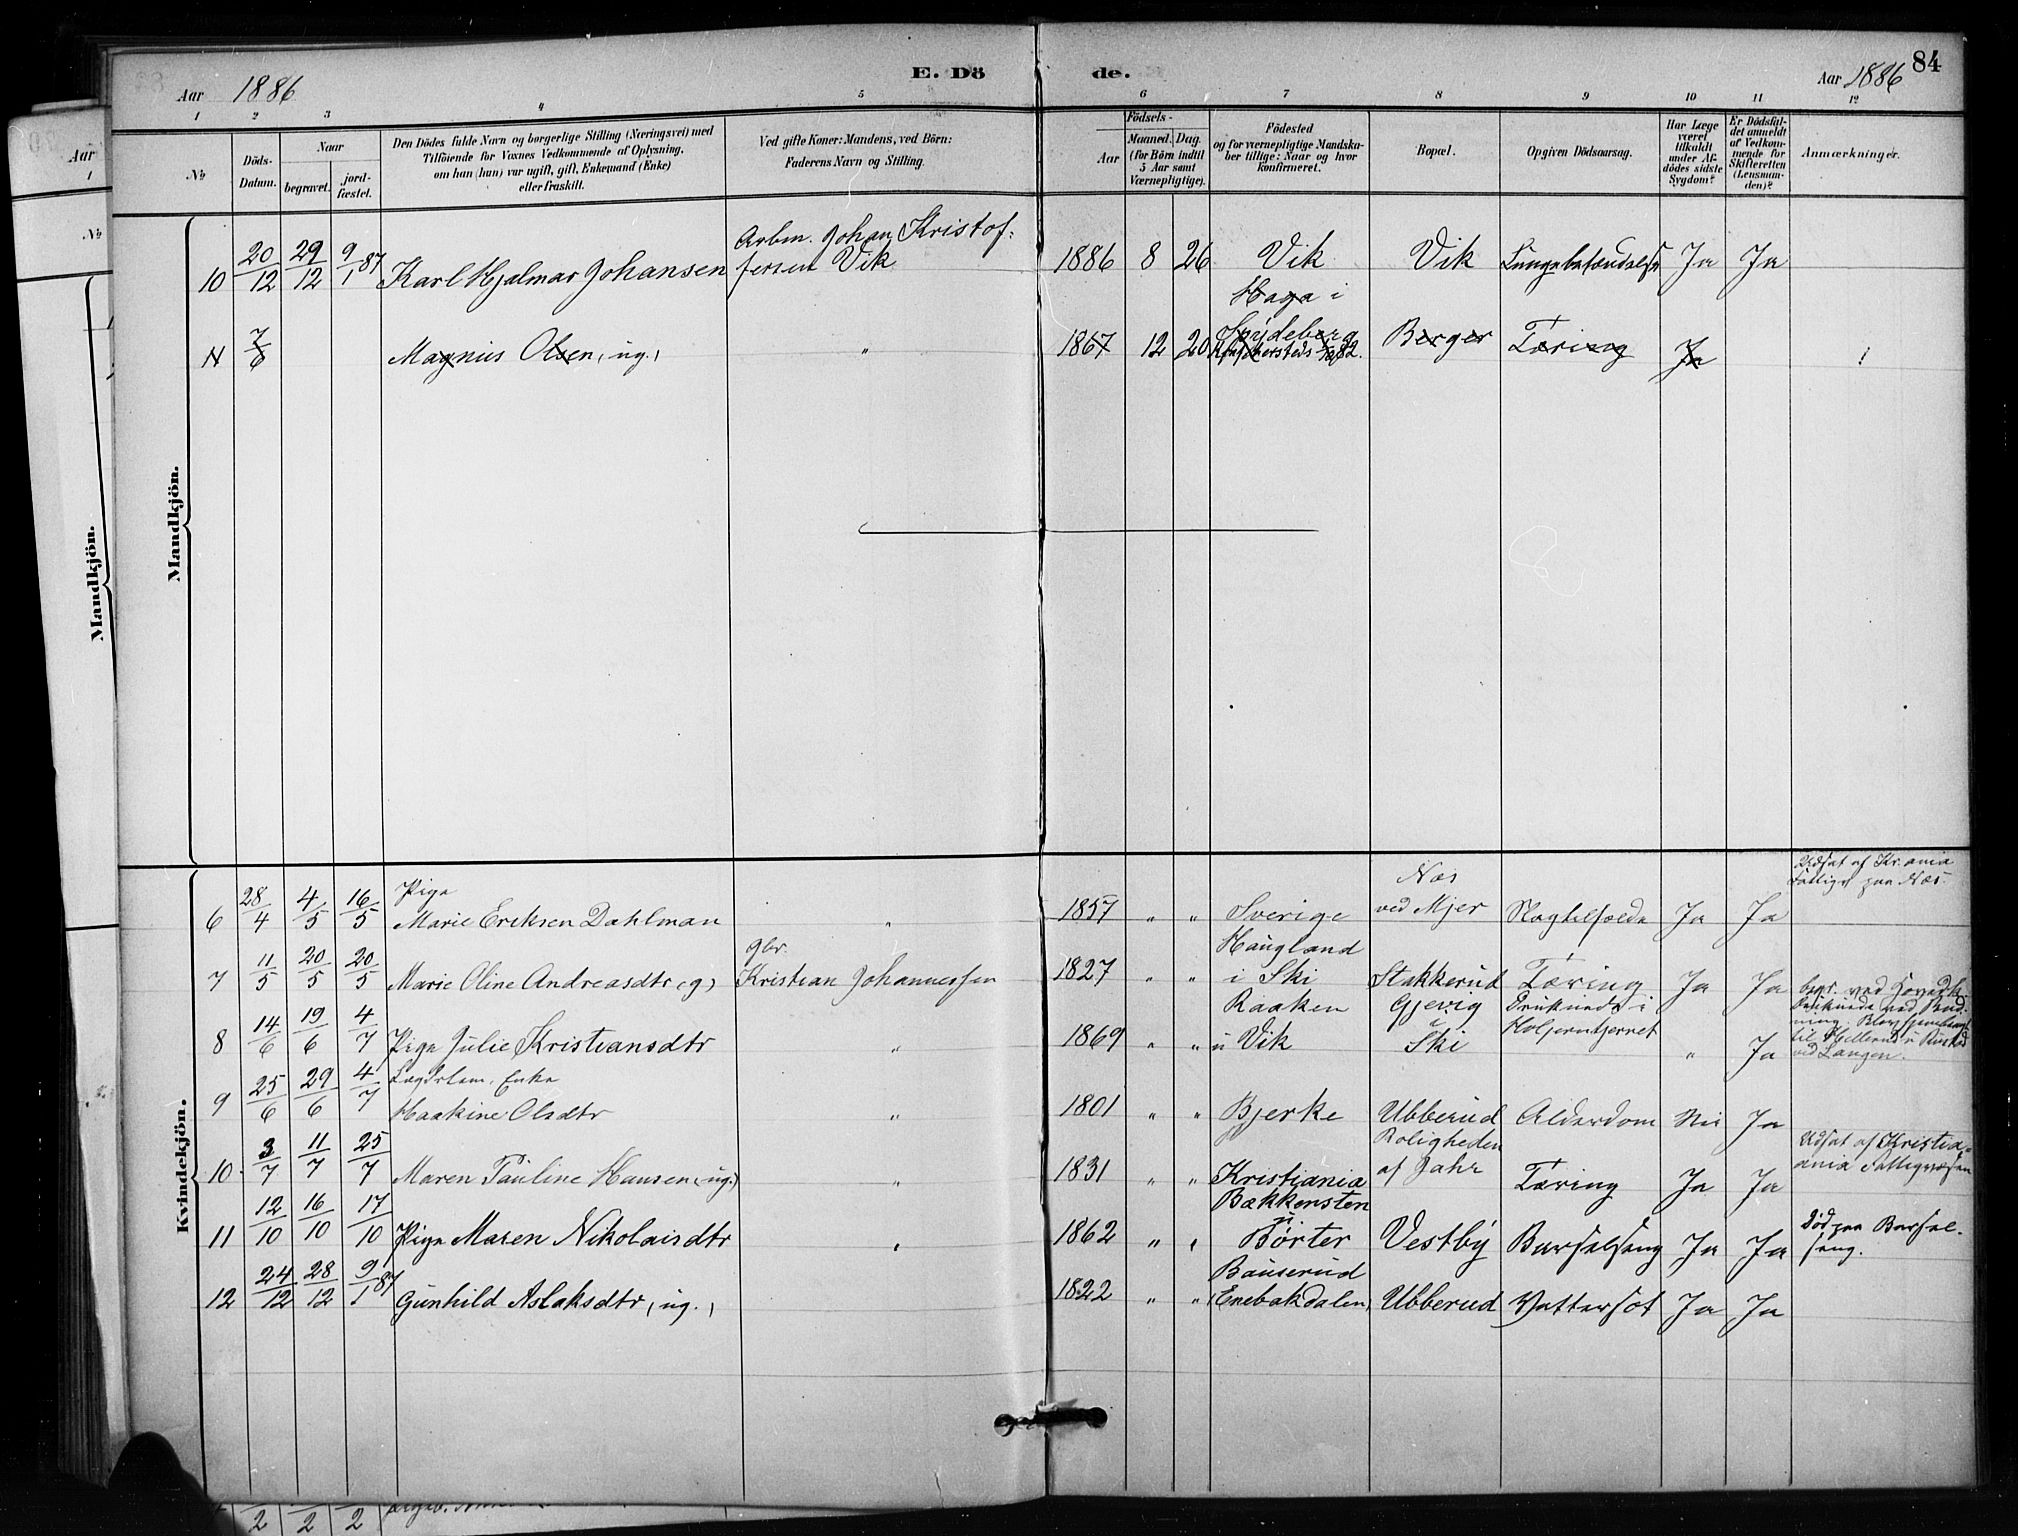 84
E. Döde.
Aar 1886
Aar 1886
1 2 3 4 5 6 7 8 9 10 11 12
No
Döds-Datum.
Naar
begravet.
jord-fæstet.
Den Dödes fulde Navn og borgerlige Stilling (Næringsvei) med
Tilföiende for Voxnes Vedkommende af Oplysning,
om han (hun) var ugift, gift, Enkemand (Enke)
eller fraskilt.
Ved gifte Koner: Mandens, ved Börn:
Faderens Navn og Stilling.
Födsels-
Aar
Maaned. Dag.
(for Börn indtil
5 Aar samt
Værnepligtige).
Födested
og for værnepligtige Mandska-
ber tillige: Naar og hvor
konfirmeret.
Bopæl.
Opgiven Dödsaarsag.
Har Læge
været
tilkaldt
under Af-
dödes sidste
Sygdom?
Er Dödsfal-
det anmeldt
af Vedkom-
mende for
Skifteretten
(Lensman-
den)?
Anmærkninger.
Mandkjön.
10 20/12 29/12 9/1 87 Karl Hjalmar Johansen Arbm. Johan Kristof-
fersen Vik 1886 8 26 Vik Vik Lungebetændelse Ja Ja
7/6 Magnus Olsen, ug., " 1867 12 20 Haga i
Spydeberg
82. Berger Tæring Ja
Kvindekjön.
6 28/4 4/5 16/5 Pige
Marie Eriksen Dahlman " 1857 " " Sverige Næs
ved Mjer Ja Ja Udsat af Kr.ania
paa Næs.
7 11/5 20/5 20/5 Marie Oline Andreasdtr, g, gbr.
Kristian Johannessen 1827 " " Haugland
i Ski Stakkerud Tæring Ja Ja
8 14/6 19/6 4/7 Pige Julie Kristiansdtr " 1869 " " Raaken
u Vik Gjevig
i
Ski Druknede i
Holjerntjernet " Ja begr. ved
ved Langen.
9 25/6 29/6 4/7 Lægdslem, Enke
Haakine Olsdtr " 1801 " " Bjerke Ubberud Alderdom Nei Ja
10 3/7 11/7 25/7 Maren Pauline Hansen, ug., " 1831 " " Kristiania Roligheden
af Jahr Tæring Ja Ja Udsat af Kristia-
ania Fattigvæsen
11 12/10 16/10 17/10 Pige Maren Nikolaisdtr " 1862 " " Bækkensten
u.
Børter Vestby Barselseng Ja Ja Död paa Barsel-
seng.
12 24/12 28/12 9/1 87 Gunhild Aslaksdtr, ug., 1822 " " Bauserud
(Enebakdalen) Ubberud Vattersot Ja Ja
Aar
1
No
Mandkjön.
2 2 2